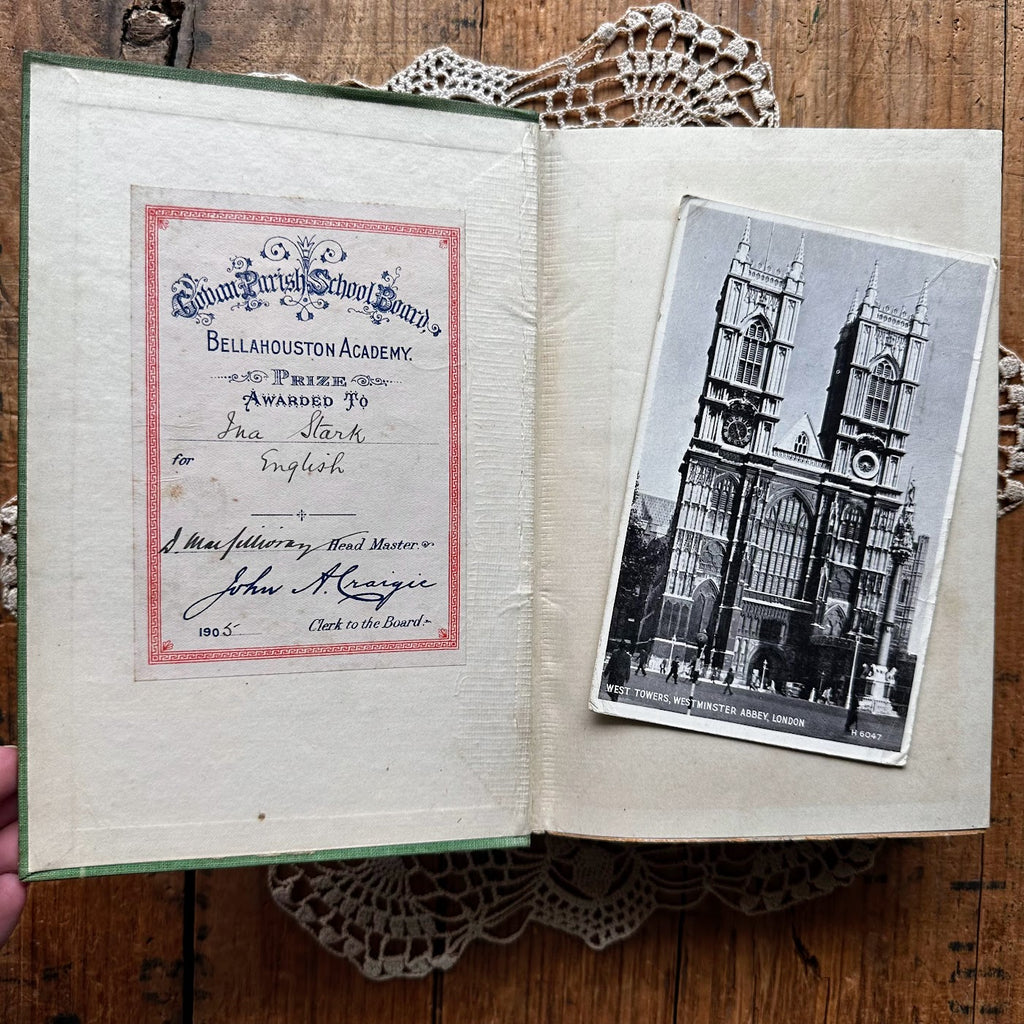 Govan Parish School Board,
BELLAHOUSTON ACADEMY.
PRIZE
AWARDED TO
Ina Stark
for English
S. MacGillivray Head Master.
John A. Craigie
1905 Clerk to the Board.
WEST TOWERS, WESTMINSTER ABBEY, LONDON
H 6047